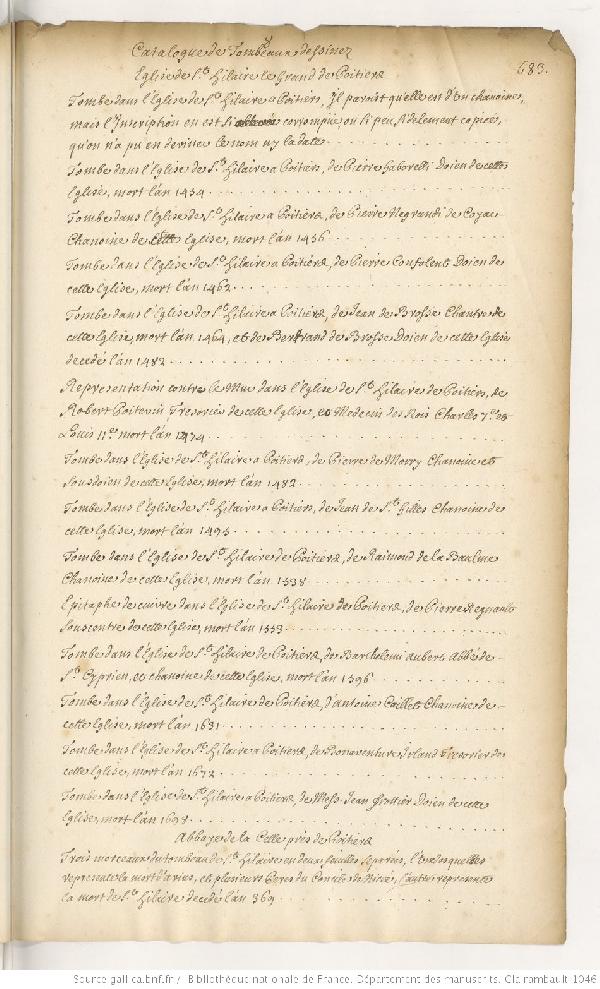 Catalogue de Tombeaux dessinez
Eglise de St. Hilaire le Grand de Poitiers
683.
Tombe dans l'Eglise de St. Hilaire a Poitiers, Il paroist qu'elle est d'un chanoine,
mais l'Inscription en est si corrompüe, ou si peu fidelement copiée,
qu'on n'a pu en deviner le nom ny la datte
Tombe dans l'Eglise de St. Hilaire a Poitiers, de Pierre Doien de cette
Eglise, mort l'an 1434
Tombe dans l'Eglise de St. Hilaire a Poitiers, de Pierre Negrandi de
Chanoine de cette Eglise, mort l'an 1456
Tombe dans l'Eglise de St. Hilaire a Poitiers, de Pierre Confolent Doien de
cette Eglise, mort l'an 1462
Tombe dans l'Eglise de St. Hilaire a Poitiers, de Jean de Brosse Chantre de
cette Eglise, mort l'an 1464, et de Bertrand de Brosse Doien de cette Eglise
decedé l'an 1482
Representation contre le Mur dans l'Eglise de St. Hilaire de Poitiers, de
Robert Poitevin Tresorier de cette Eglise, et Medecin des Rois Charles 7e. et
Louis 11e. mort l'an 1474
Tombe dans l'Eglise de St. Hilaire a Poitiers, de Pierre de Morry Chanoine et
Sousdoien de cette Eglise, mort l'an 1482
Tombe dans l'Eglise de St. Hilaire a Poitiers, de Jean de St. Gilles Chanoine de
cette Eglise, mort l'an 1495
Tombe dans l'Eglise de St. Hilaire de Poitiers, de Raimond de la Baulme
Chanoine de cette Eglise, mort l'an 1538
Epitaphe de cuivre dans l'Eglise de St. Hilaire de Poitiers, de Pierre Regnault
de cette Eglise, mort l'an 1553
Tombe dans l'Eglise de St. Hilaire de Poitiers, de Barthelemi Aubert Abbé de
St. Cyprien, et chanoine de cette Eglise, mort l'an 1596
Tombe dans l'Eglise de St. Hilaire de Poitiers, d'antoine Chanoine de
cette Eglise, mort l'an 1631
Tombe dans l'Eglise de St. Hilaire a Poitiers, de Bonaventure Irland Tresorier de
cette Eglise, mort l'an 1672
Tombe dans l'Eglise de St. Hilaire a Poitiers, de Mess. Jean Doien de cette
Eglise, mort l'an 1698
Abbaye de la Celle près de Poitiers
Trois morceaux du tombeau de St. Hilaire en deux feuilles separées, l'une desquelles
represente la mort d'arius, et plusieurs Peres du Concile de Nicée, l'autre represente
la mort de St. Hilaire decedé l'an 369
Source gallica.bnf.fr / Bibliothèque nationale de France. Département des manuscrits. Clairambault 1046